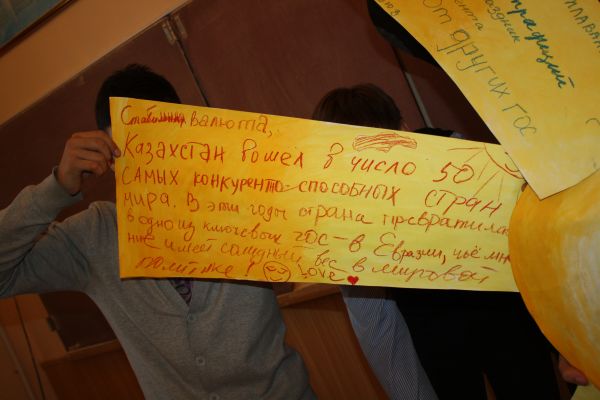 Стабильная валюта,
Казахстан вошел в число 50
самых конкуренто-способных стран
мира. В эти годы страна превратилас
в одно из ключевых гос-в Евразии, чьё мне
ние имеет солидный вес в мировой
политике! LOVE
традиций
от других гос